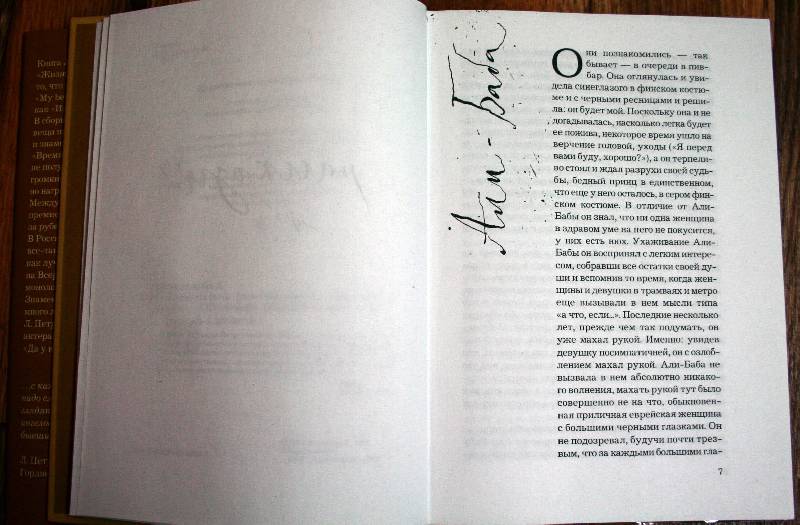 Книга
«Жизнь
то, что
«My be
как «И
В сборн
вещи и
и знаме
«Время
не полу
громки
но нагр
Между
премие
за рубе
В Росси
все-так
как луч
на Всер
моноло
Знамен
много л
Л. Петр
актера
«Да у н
...с каж
надо ел
Л. Пет
Гордо
Али-Баба
Они познакомились — так
бывает — в очереди в пив-
бар. Она оглянулась и уви-
дела синеглазого в финском костю-
ме и с черными ресницами и реши-
ла: он будет мой. Поскольку она и не
догадывалась, насколько легка будет
ее пожива, некоторое время ушло на
верчение головой, уходы («Я перед
вами буду, хорошо?»), а он терпели-
во стоял и ждал разрухи своей судь-
бы, бедный принц в единственном,
что еще у него осталось, в сером фин-
ском костюме. В отличие от Али-
Бабы он знал, что ни одна женщина
в здравом уме на него не покусится,
у них есть нюх. Ухаживание Али-
Бабы он воспринял с легким интере-
сом, собравши все остатки своей ду-
ши и вспомнив то время, когда жен-
щины и девушки в трамваях и метро
еще вызывали в нем мысли типа
«а что, если...». Последние несколько
лет, прежде чем так подумать, он
уже махал рукой. Именно: увидев
девушку посимпатичней, он с озлоб-
лением махал рукой. Али-Баба не
вызвала в нем абсолютно никако-
го волнения, махать рукой тут было
совершенно не на что, обыкновен-
ная приличная еврейская женщина
с большими черными глазками. Он
не подозревал, будучи почти трез-
вым, что за каждыми большими гла-
7